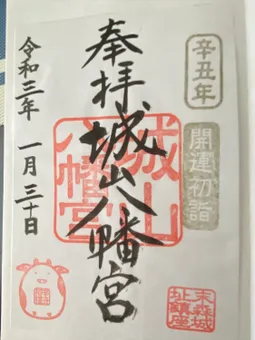 辛丑年
開運初詣
奉拝
城山八幡宮
城山八幡宮
令和三年 一月三十日
末森城址鎮座